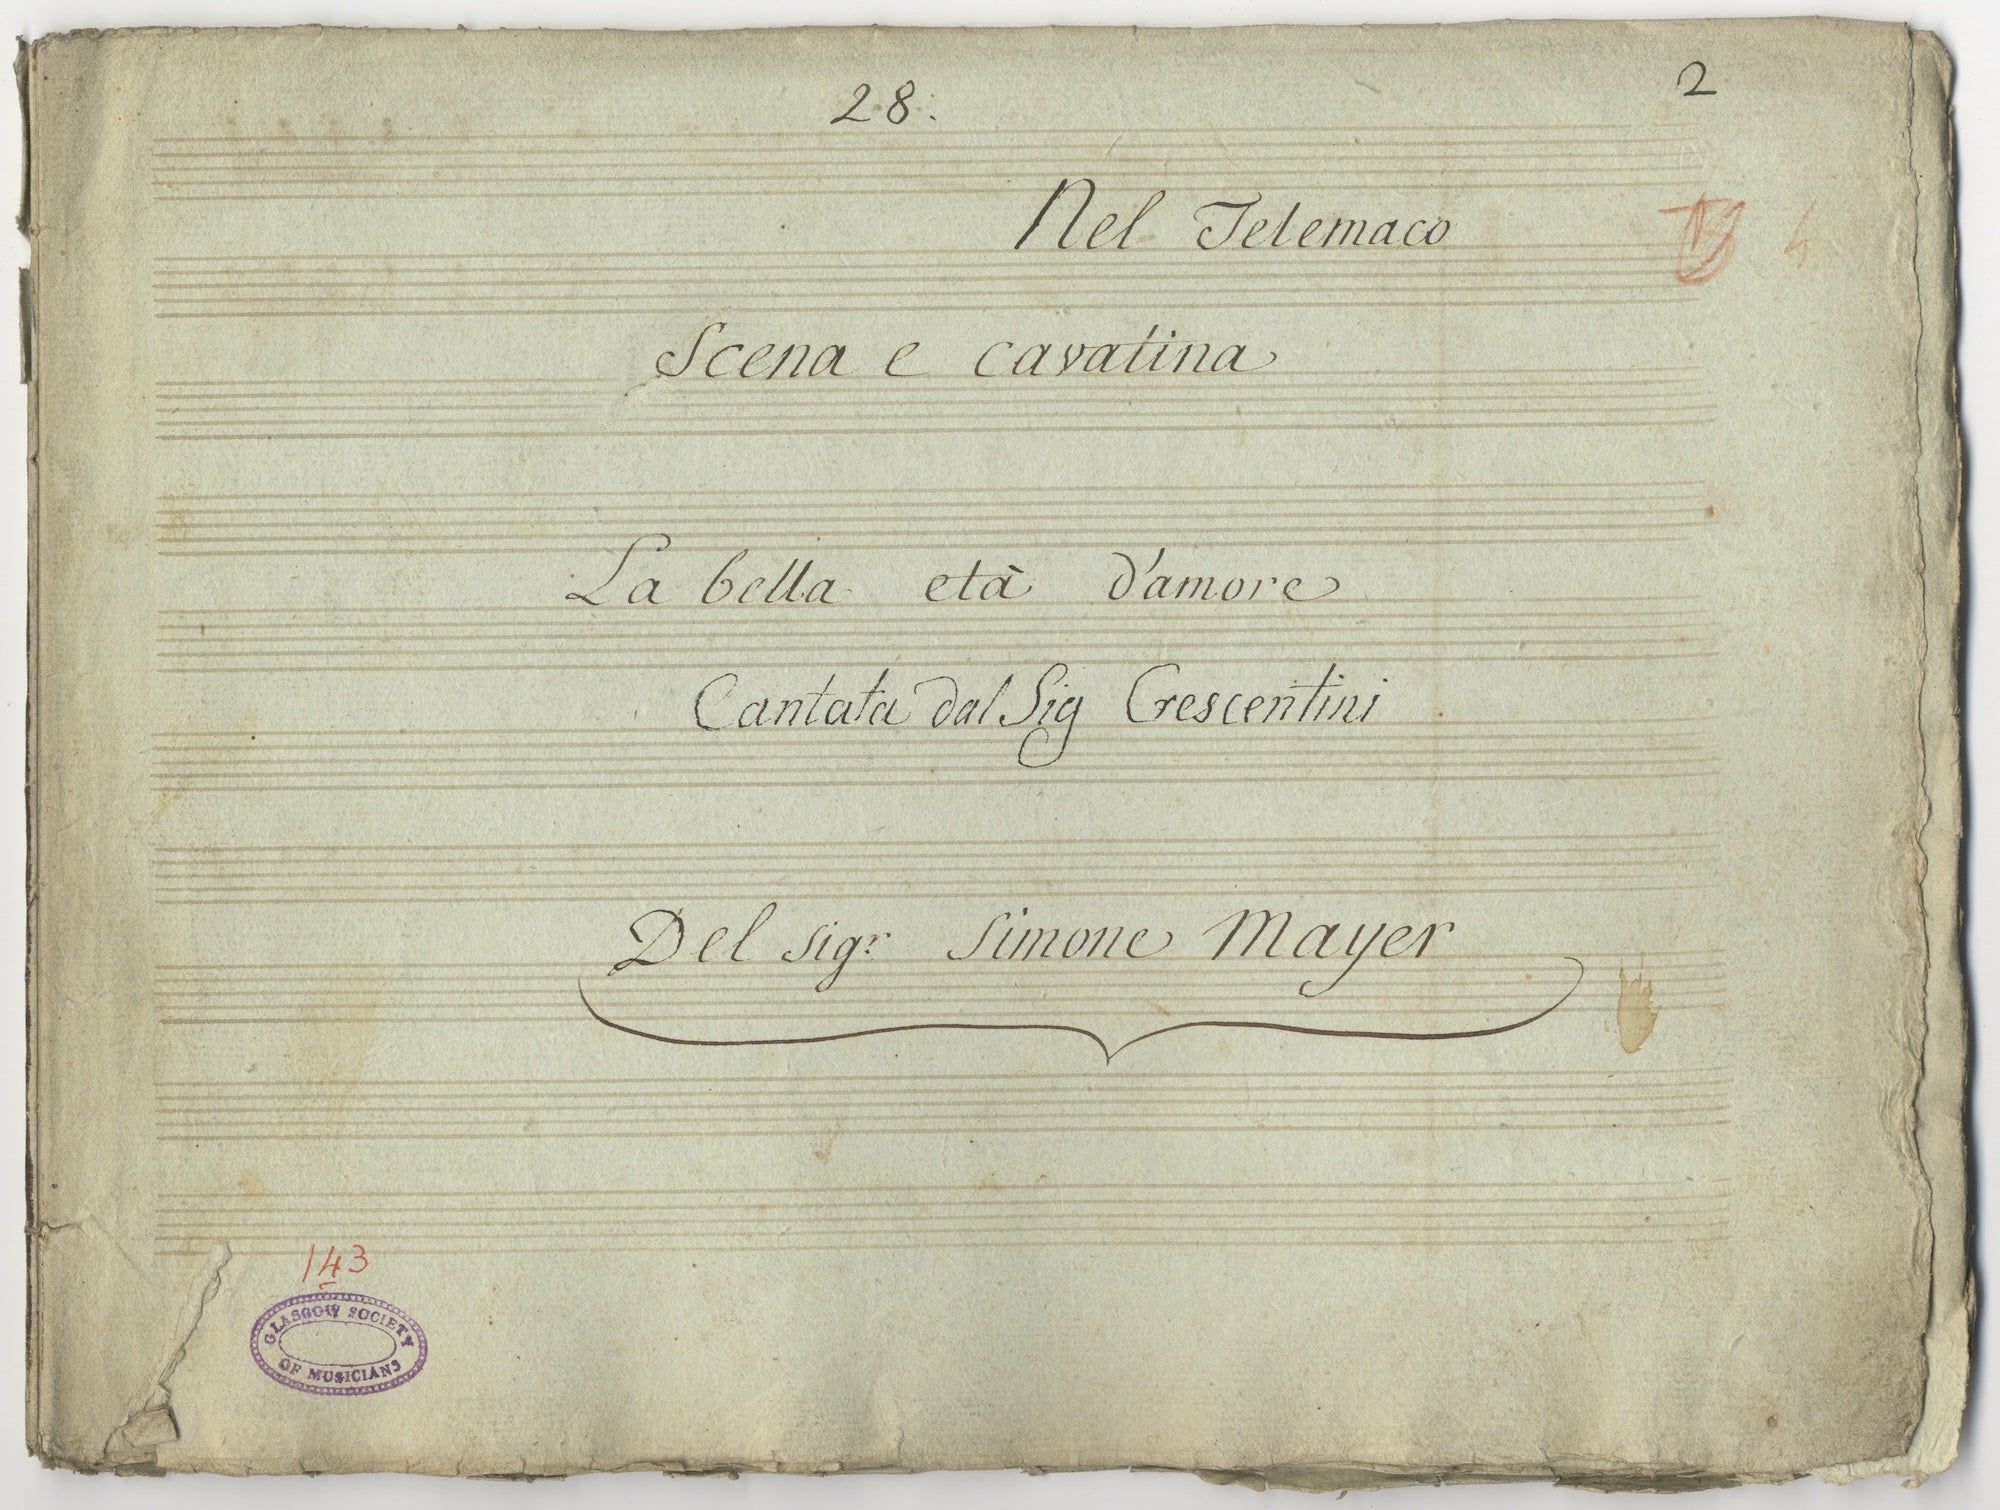 28.
2
Nel Telemaco
4
Scena e cavatina
La bella età d'amore
Cantata dal Sig Crescentini
Del sigr. Simone Mayer
143
GLASGOW SOCIETY
OF MUSICIANS